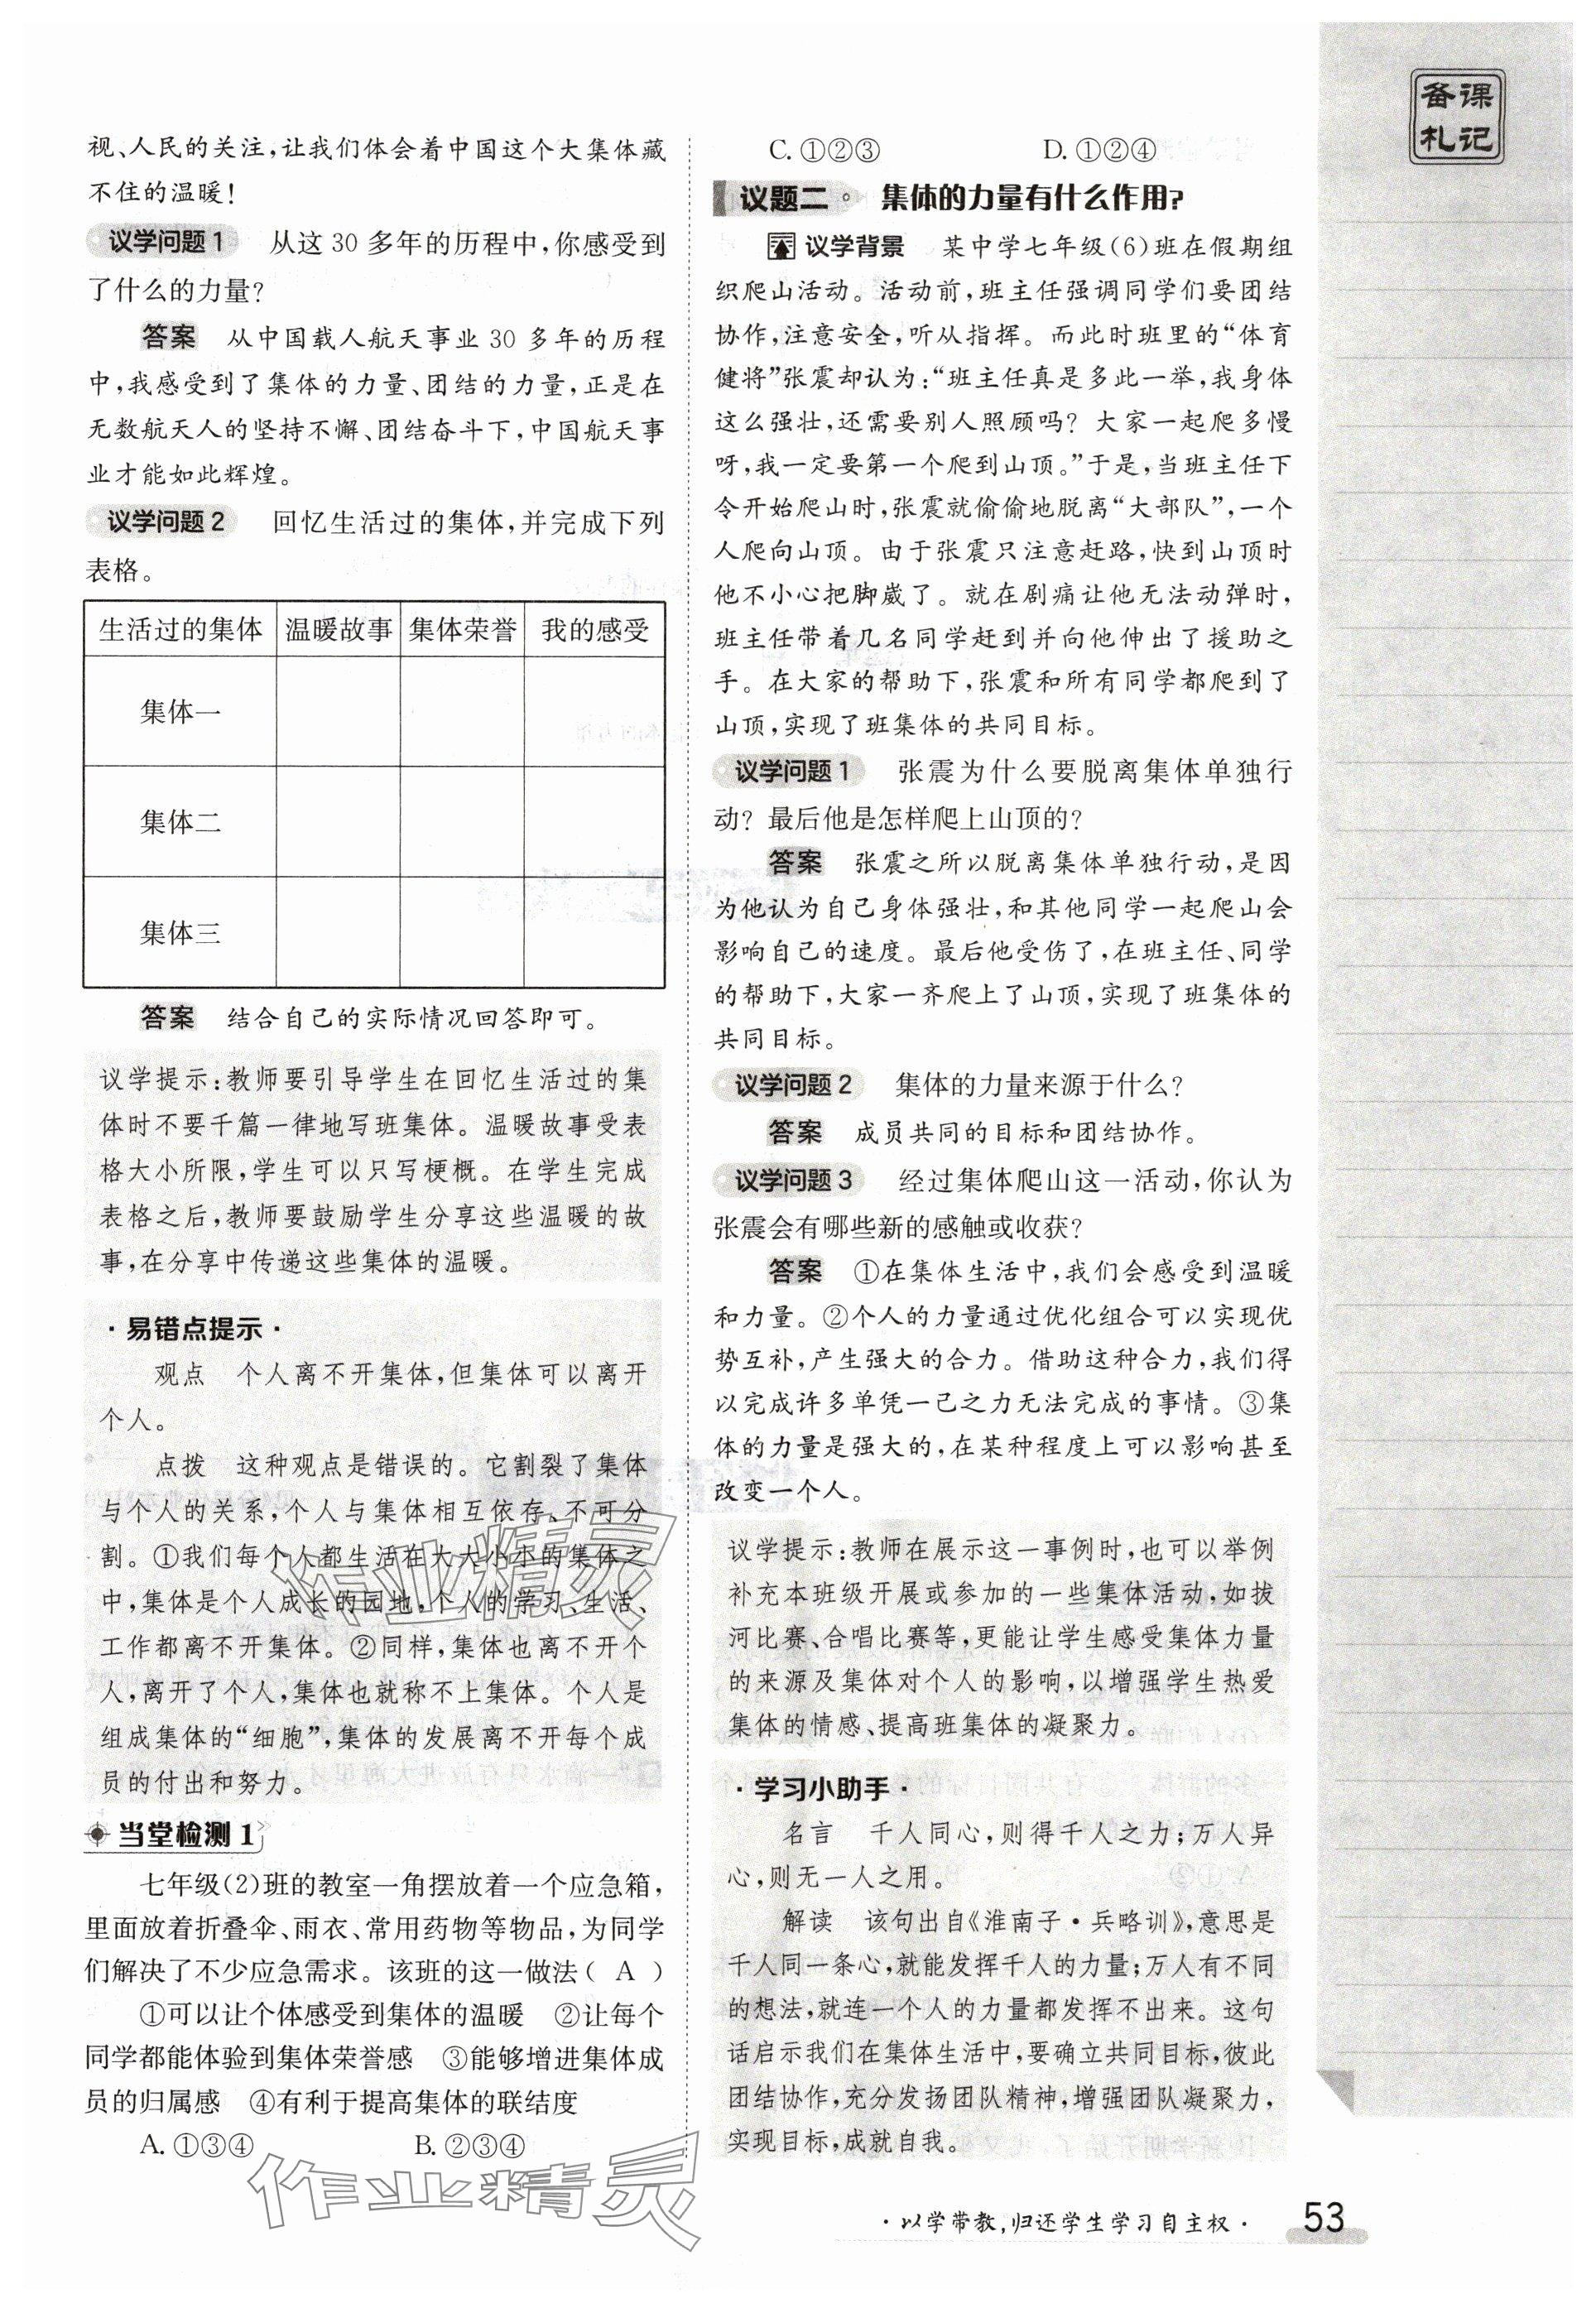 备课
札记
视、人民的关注,让我们体会着中国这个大集体藏
不住的温暖!
议学问题1 从这30多年的历程中,你感受到
了什么的力量?
答案 从中国载人航天事业30多年的历程
中,我感受到了集体的力量、团结的力量,正是在
无数航天人的坚持不懈、团结奋斗下,中国航天事
业才能如此辉煌。
议学问题2 回忆生活过的集体,并完成下列
表格。
生活过的集体 温暖故事 集体荣誉 我的感受
集体一
集体二
集体三
答案 结合自己的实际情况回答即可。
议学提示:教师要引导学生在回忆生活过的集
体时不要千篇一律地写班集体。温暖故事受表
格大小所限,学生可以只写梗概。在学生完成
表格之后,教师要鼓励学生分享这些温暖的故
事,在分享中传递这些集体的温暖。
·易错点提示·
观点 个人离不开集体,但集体可以离开
个人。
点拨 这种观点是错误的。它割裂了集体
与个人的关系,个人与集体相互依存、不可分
割。①我们每个人都生活在大大小小的集体之
中,集体是个人成长的园地,个人的学习、生活、
工作都离不开集体。②同样,集体也离不开个
人,离开了个人,集体也就称不上集体。个人是
组成集体的“细胞”,集体的发展离不开每个成
员的付出和努力。
当堂检测1
七年级(2)班的教室一角摆放着一个应急箱,
里面放着折叠伞、雨衣、常用药物等物品,为同学
们解决了不少应急需求。该班的这一做法( A )
①可以让个体感受到集体的温暖 ②让每个
同学都能体验到集体荣誉感 ③能够增进集体成
员的归属感 ④有利于提高集体的联结度
A. ①③④ B. ②③④
C. ①②③ D. ①②④
议题二 集体的力量有什么作用?
议学背景 某中学七年级(6)班在假期组
织爬山活动。活动前,班主任强调同学们要团结
协作,注意安全,听从指挥。而此时班里的“体育
健将”张震却认为:“班主任真是多此一举,我身体
这么强壮,还需要别人照顾吗?大家一起爬多慢
呀,我一定要第一个爬到山顶。”于是,当班主任下
令开始爬山时,张震就偷偷地脱离“大部队”,一个
人爬向山顶。由于张震只注意赶路,快到山顶时
他不小心把脚崴了。就在剧痛让他无法动弹时,
班主任带着几名同学赶到并向他伸出了援助之
手。在大家的帮助下,张震和所有同学都爬到了
山顶,实现了班集体的共同目标。
议学问题1 张震为什么要脱离集体单独行
动?最后他是怎样爬上山顶的?
答案 张震之所以脱离集体单独行动,是因
为他认为自己身体强壮,和其他同学一起爬山会
影响自己的速度。最后他受伤了,在班主任、同学
的帮助下,大家一齐爬上了山顶,实现了班集体的
共同目标。
议学问题2 集体的力量来源于什么?
答案 成员共同的目标和团结协作。
议学问题3 经过集体爬山这一活动,你认为
张震会有哪些新的感触或收获?
答案 ①在集体生活中,我们会感受到温暖
和力量。②个人的力量通过优化组合可以实现优
势互补,产生强大的合力。借助这种合力,我们得
以完成许多单凭一己之力无法完成的事情。③集
体的力量是强大的,在某种程度上可以影响甚至
改变一个人。
议学提示:教师在展示这一事例时,也可以举例
补充本班级开展或参加的一些集体活动,如拔
河比赛、合唱比赛等,更能让学生感受集体力量
的来源及集体对个人的影响,以增强学生热爱
集体的情感、提高班集体的凝聚力。
·学习小助手·
名言 千人同心,则得千人之力;万人异
心,则无一人之用。
解读 该句出自《淮南子·兵略训》,意思是
千人同一条心,就能发挥千人的力量;万人有不同
的想法,就连一个人的力量都发挥不出来。这句
话启示我们在集体生活中,要确立共同目标,彼此
团结协作,充分发扬团队精神,增强团队凝聚力,
实现目标,成就自我。
作业精灵
作业精灵
·以学带教,归还学生学习自主权·
53